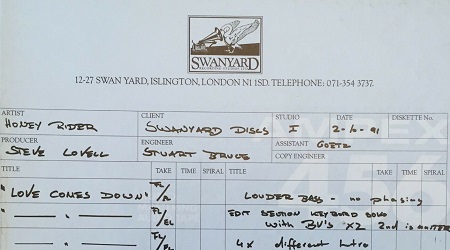 SWANYARD
RECORDING STUDIOS LTD
12-27 SWAN YARD, ISLINGTON, LONDON N1 1SD. TELEPHONE: 071-354 3737.
ARTIST CLIENT STUDIO DATE DISKETTE No.
HONEY RIDER SWANYARD DISCS I 2-10-91
PRODUCER ENGINEER ASSISTANT GOETZ
STEVE LOVELL STUART BRUCE COPY ENGINEER
AMPEX
456
TITLE TAKE TIME SPIRAL TITLE TAKE TIME SPIRAL
"LOVE CONES DOWN" FL/R LOUDER BASS - no phasing
— " — FL/EL EDIT SECTION KEYBOARD SOLO
with BV's X2 2nd is
— " — FL/EL 4x different Intro